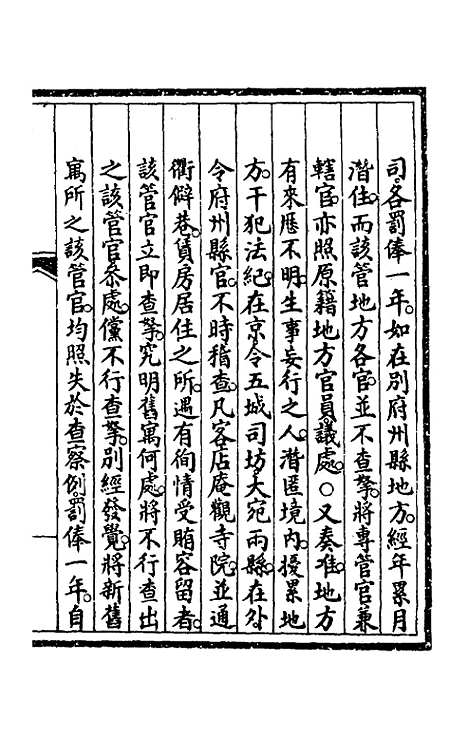 司各罰俸一年。如在別府州縣地方。經年累月
潛住。而該管地方各官。並不查拏。將專管官兼
轄官。亦照原籍地方官員議處。○又奏准。地方
有來歷不明。生事妄行之人。潛匿境內。擾累地
方。干犯法紀。在京令五城司坊大宛兩縣。在外
令府州縣官。不時稽查。凡客店庵觀寺院。並通
衢僻巷。賃房居住之所。遇有徇情受賄容留者。
該管官立即查拏。究明舊寓何處。將不行查出
之該管官叅處。儻不行查拏。別經發覺。將新舊
寓所之該管官。均照失於查察例。罰俸一年。自